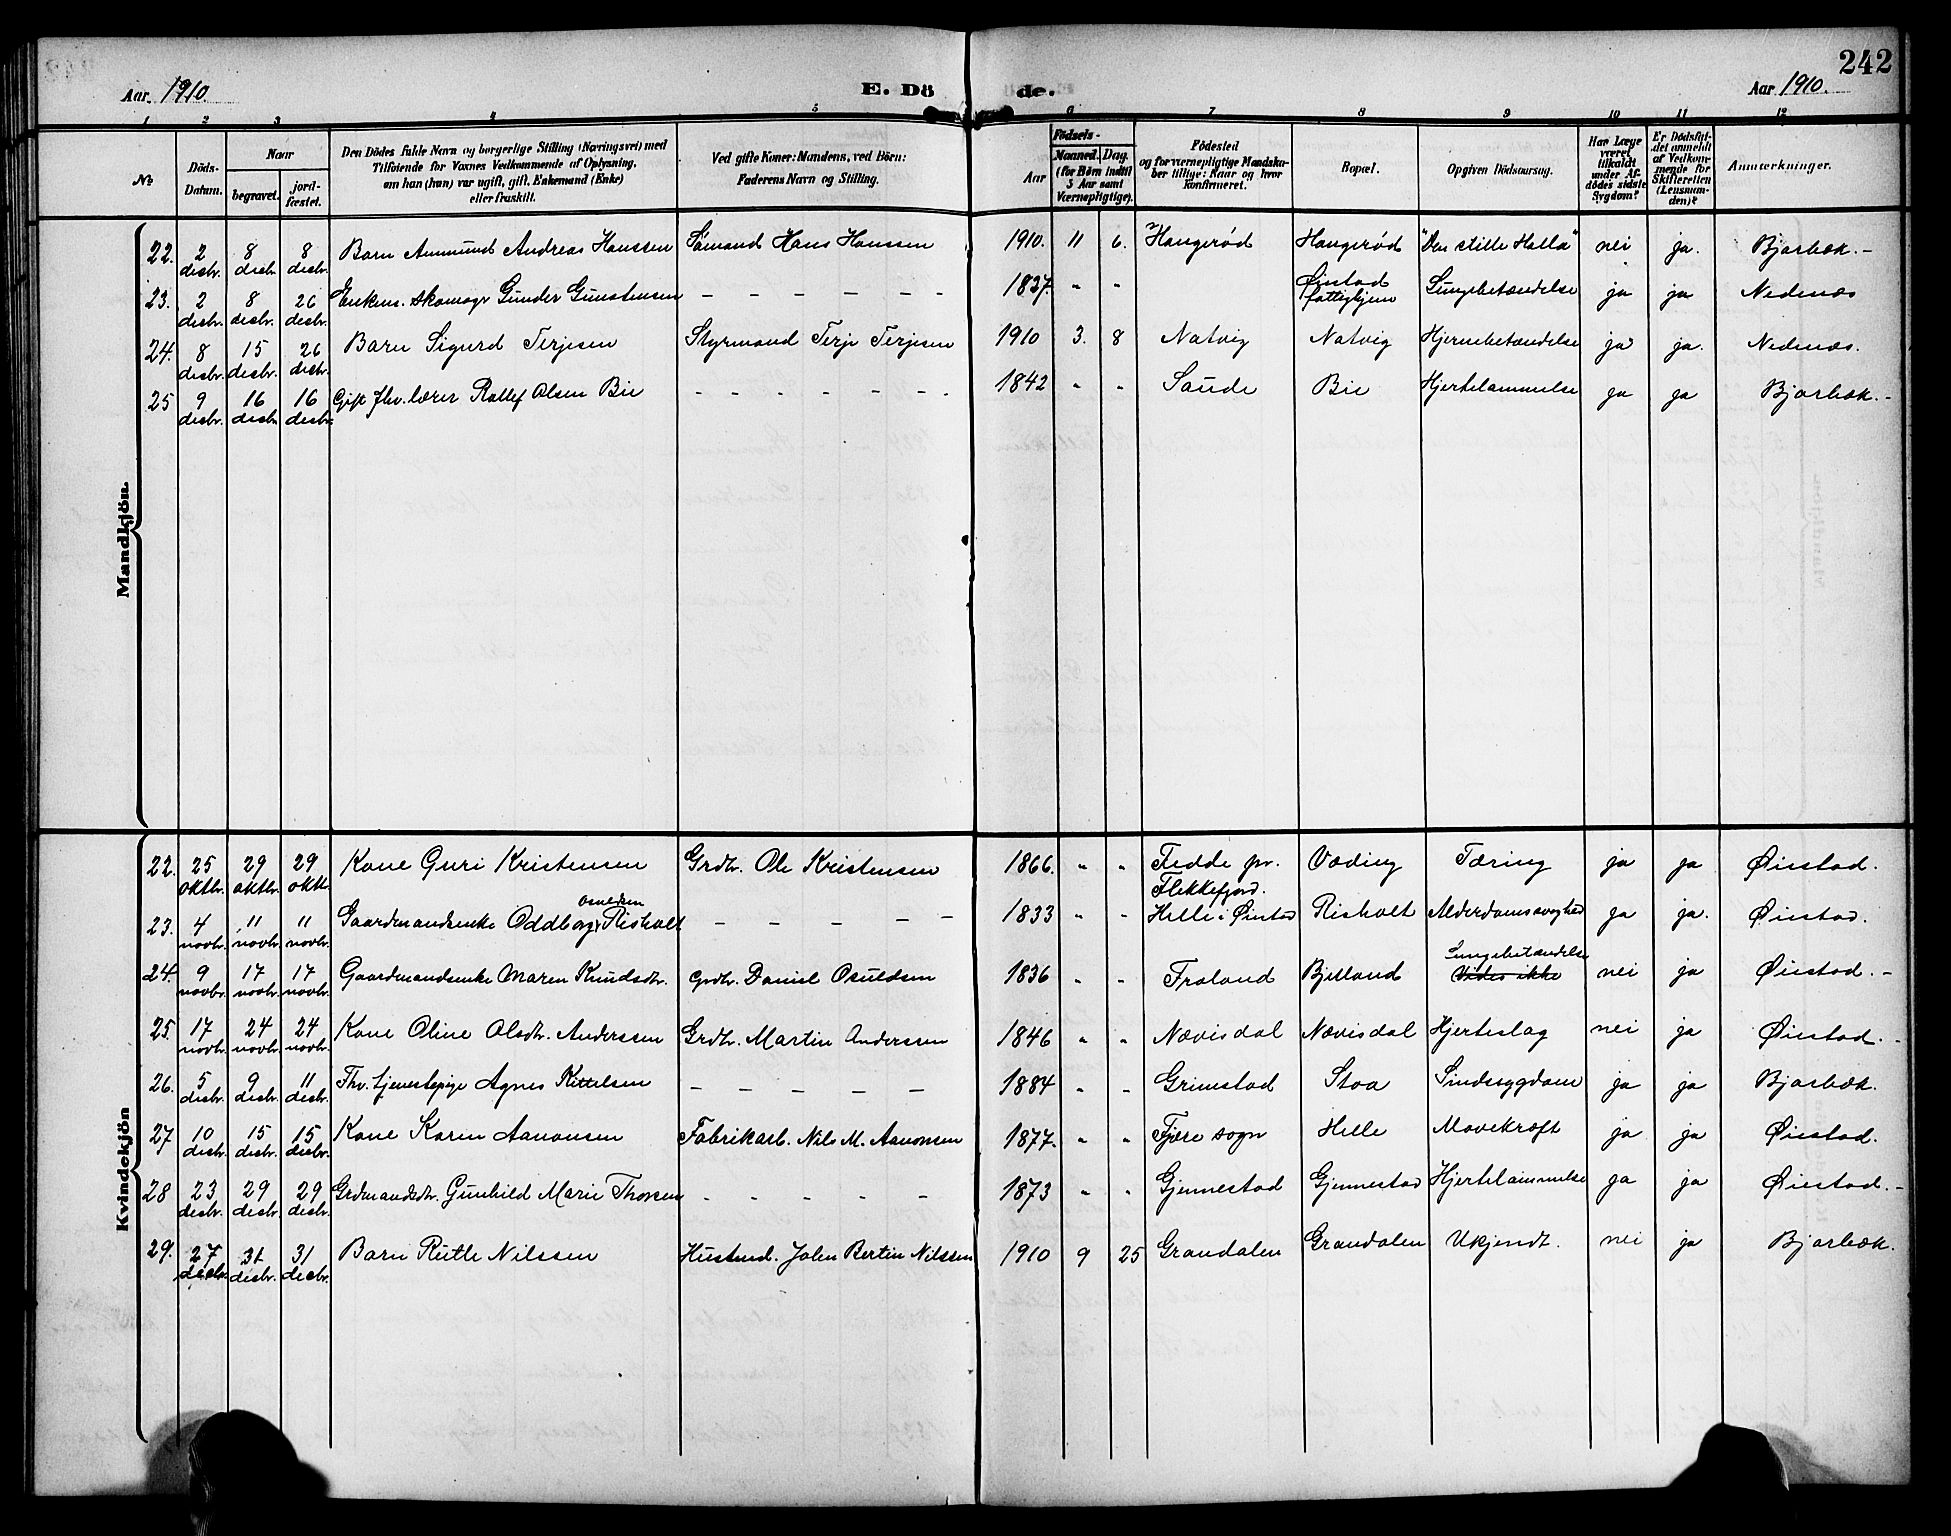 242
Aar 1910. E. Dö de. Aar 1910.
1 2 3 4 5 6 7 8 9 10 11 12
№ Döds-Datum. Naar begravet. jordfæstet. Den Dödes fulde Navn og borgerlige Stilling (Næringsvei) med Tilföiende for Voxnes Vedkommende af Oplysning, om han (hun) var ugift, gift, Enkemand (Enke) eller fraskilt. Ved gifte Koner: Mandens, ved Börn: Faderens Navn og Stilling. Födsels- Aar Maaned. Dag. (for Börn indtil 5 Aar samt Værnepligtige). Födested og for værnepligtige Mandskaber tillige: Naar og hvor konfirmeret. Bopæl. Opgiven Dödsaarsag. Har Læge været tilkaldt under Afdödes sidste Sygdom? Er Dödsfaldet anmeldt af Vedkommende for Skifteretten (Lensmanden)? Anmærkninger.
Mandkjön.
22. 2 decbr. 8 decbr. 8 decbr. Barn Anmund Andreas Hanssen Sömand Hans Hanssen 1910. 11 6. Haugeröd Haugeröd "Den stille Halla" nei ja. Bjorbæk.-
23. 2 decbr. 8 decbr. 26 decbr. Enkem. skomagr Gunder Gunstensen - - - - - - 1837. " " Øiestad fattighjem Lungebetændelse ja ja Nedenæs
24. 8 decbr. 15 decbr. 26 decbr. Barn Sigurd Terjesen Styrmand Terje Terjesen 1910 3. 8 Natvig Natvig Hjernebetændelse ja ja. Nedenæs.
25 9 decbr. 16 decbr. 16 decbr. Gift fhv. lærer Rollef Olsen Bie - - - - - - 1842 " " Saude Bie Hjertelammelse ja ja Bjorbæk.-
Kvindekjön
22. 25 oktbr. 29 oktbr. 29 oktbr. Kone Guri Kristensen Grdbr. Ole Kristensen 1866. " " Fedde pr. Flekkefjord. Væding Tæring ja ja Øiestad.
23. 4 novbr. 11 novbr. 11 novbr. Gaardmandsenke Oddborg Osuldsen Risholt - - - - - 1833 " " Helle i Øiestad Risholt Alderdomssvaghed ja ja. Øiestad.
24. 9 novbr. 17 novbr. 17 novbr. Gaardmandsenke Maren Knudsdtr. Grdbr. Daniel Osuldsen 1836 " " Froland Bjelland Lungebetændelse Vides ikke nei ja Øiestad.-
25. 17 novbr. 24 novbr. 24 novbr. Kone Oline Olsdtr. Anderssen Grdbr. Martin Anderssen 1846 " " Nævisdal Nævisdal Hjerteslag nei ja Øiestad.-
26. 5 decbr. 9 decbr. 11 decbr. Fhv. tjenestepige Agnes Kittelsen - - - - - 1884 " " Grimstad Stoa Sindssygdom ja ja Bjorbæk.
27 10 decbr. 15 decbr. 15 decbr. Kone Karen Aanonsen Fabrikarb. Nils M. Aanonsen 1877. " " Fjære sogn Helle Mavekræft ja ja Øiestad.
28 23 decbr. 29 decbr. 29 decbr. Grdmandsdtr. Gunhild Marie Thorsen - - - - - 1873 " " Gjennestad Gjennestad Hjertelammelse ja ja Øiestad.-
29. 27 decbr. 31 decbr. 31 decbr. Barn Ruth Nilssen Husmd. Johan Bertin Nilssen 1910 9 25 Grandalen Grandalen Ukjendt. nei ja Bjorbæk.